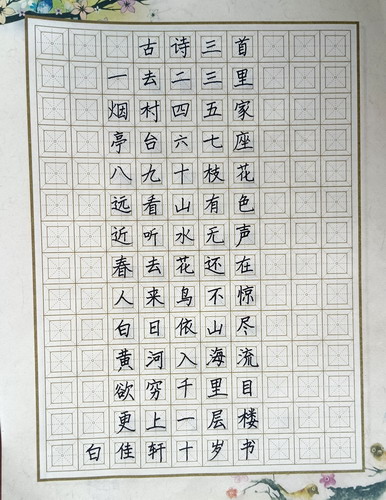 古诗三首
一去二三里
烟村四五家
亭台六七座
八九十枝花
远看山有色
近听水无声
春去花还在
人来鸟不惊
白日依山尽
黄河入海流
欲穷千里目
更上一层楼
白佳轩十岁书